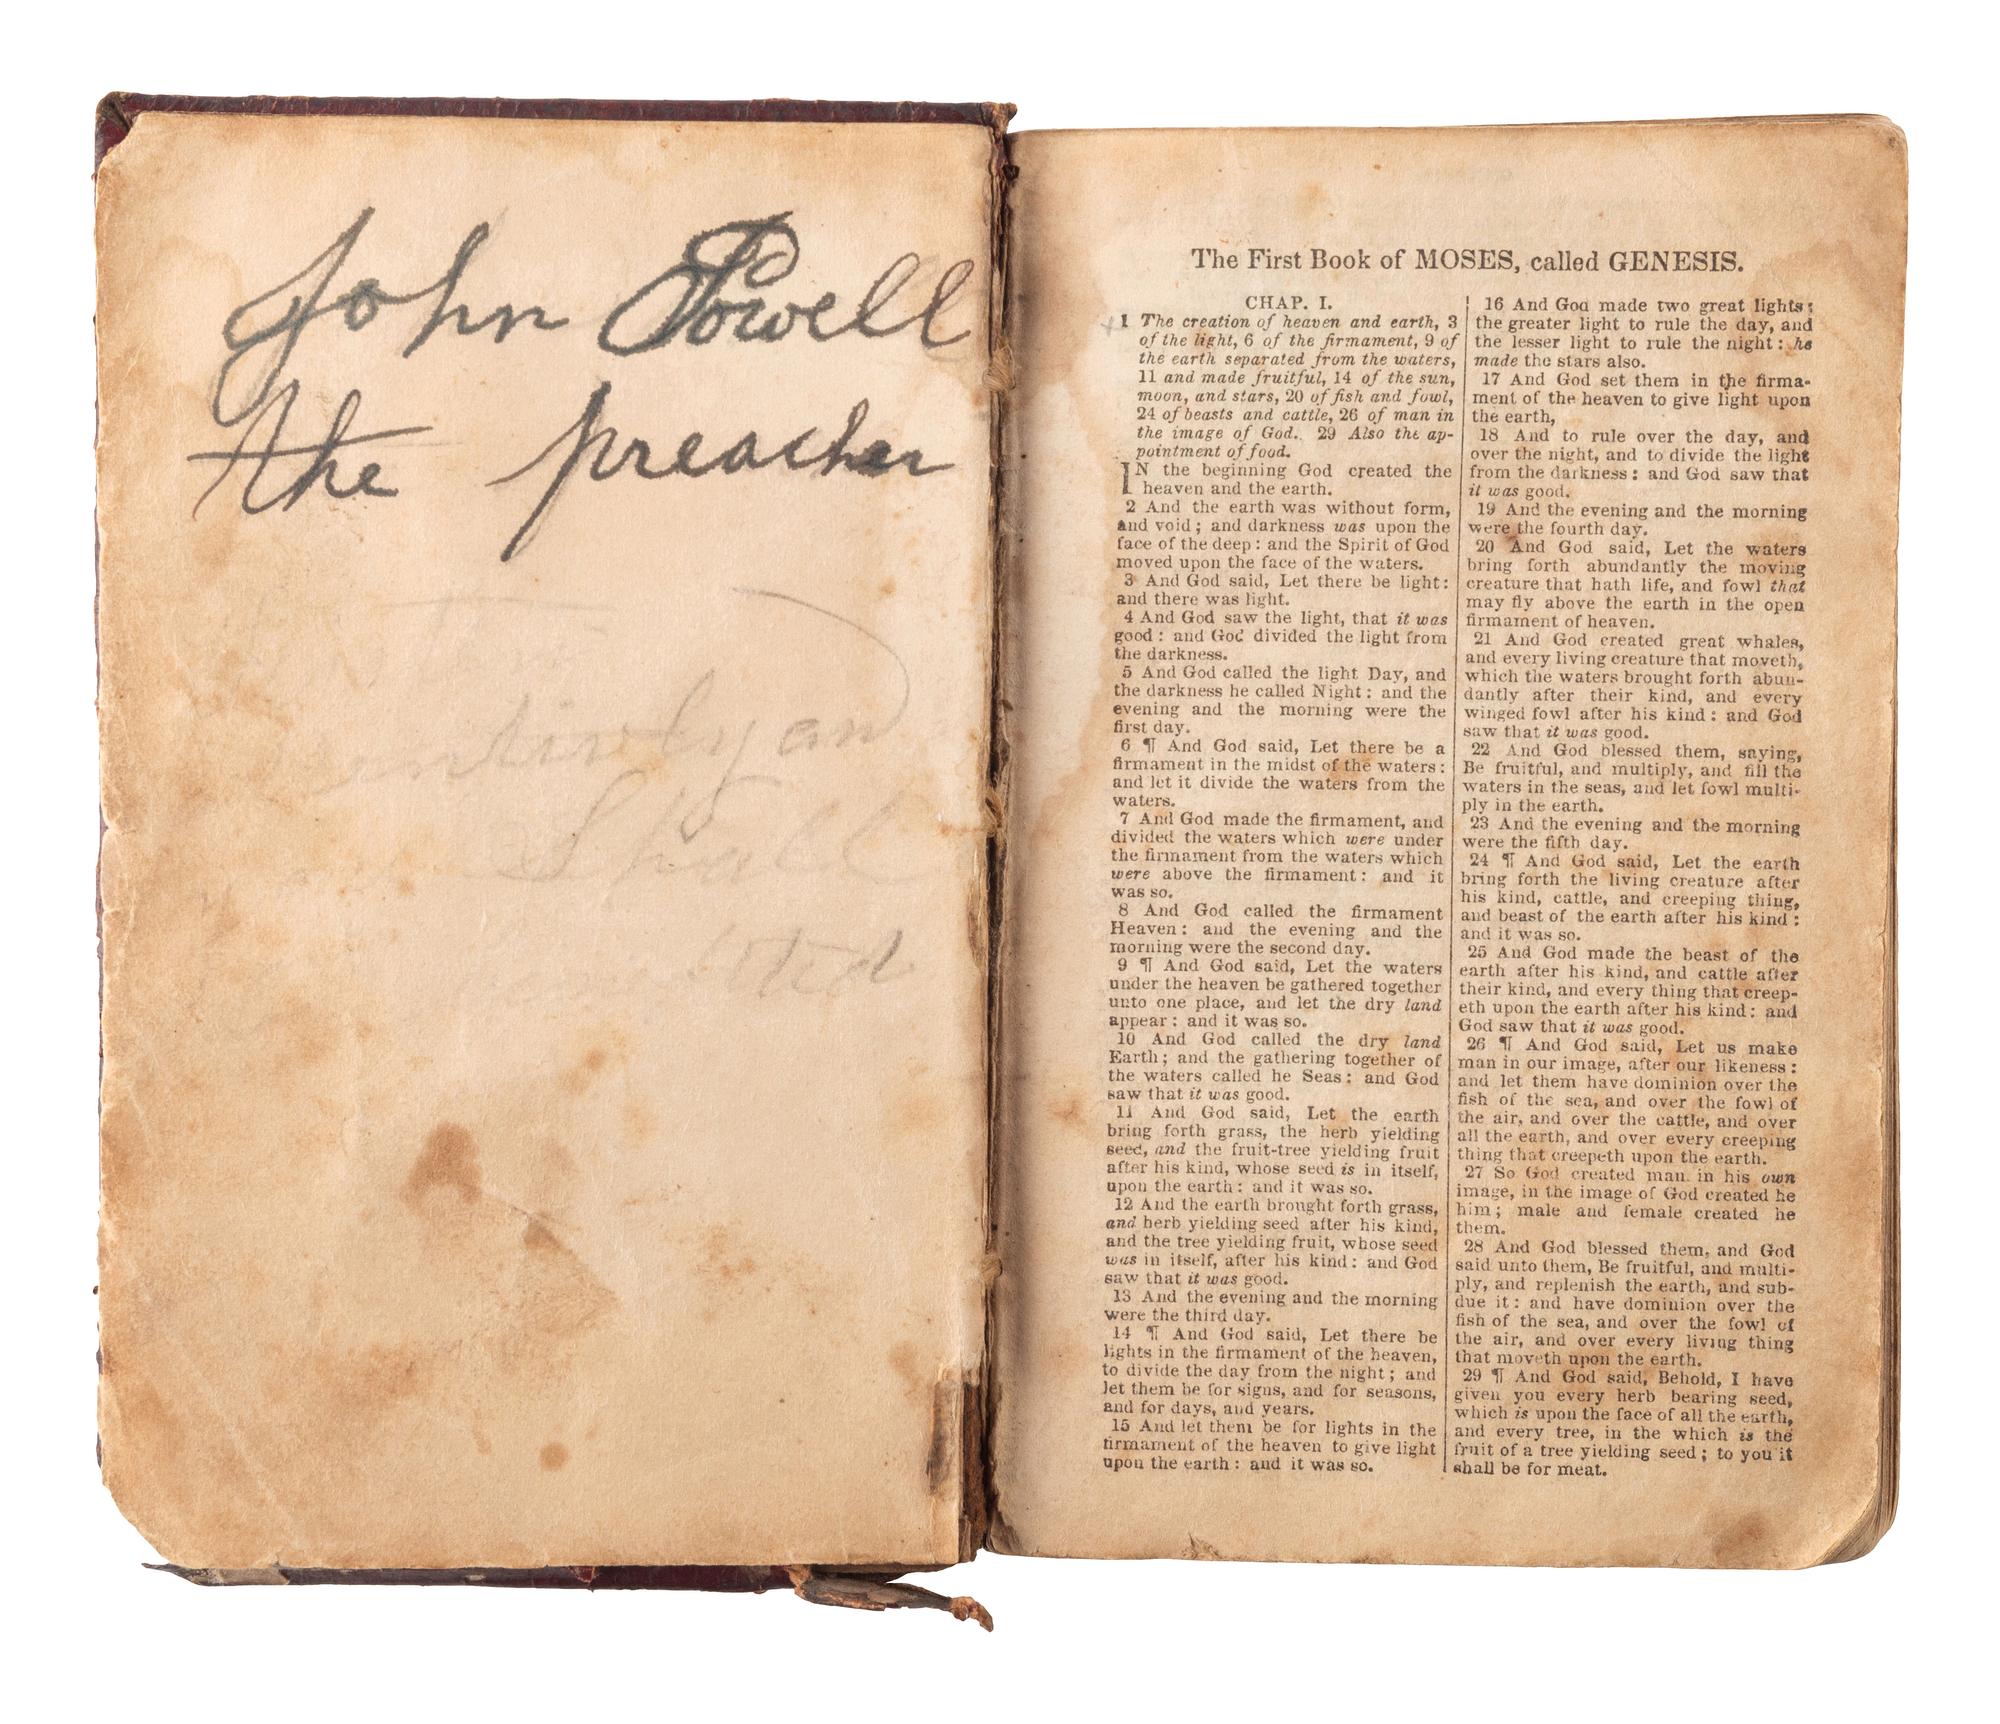 John Powell
the preacher
The First Book of MOSES, called GENESIS.
CHAP. I.
1 The creation of heaven and earth, 3
of the light, 6 of the firmament, 9 of
the earth separated from the waters,
11 and made fruitful, 14 of the sun,
moon, and stars, 20 of fish and fowl,
24 of beasts and cattle, 26 of man in
the image of God. 29 Also the ap-
pointment of food.
IN the beginning God created the
heaven and the earth.
2 And the earth was without form,
and void; and darkness was upon the
face of the deep: and the Spirit of God
moved upon the face of the waters.
3 And God said, Let there be light:
and there was light.
4 And God saw the light, that it was
good: and God divided the light from
the darkness.
5 And God called the light Day, and
the darkness he called Night: and the
evening and the morning were the
first day.
6 ¶ And God said, Let there be a
firmament in the midst of the waters:
and let it divide the waters from the
waters.
7 And God made the firmament, and
divided the waters which were under
the firmament from the waters which
were above the firmament: and it
was so.
8 And God called the firmament
Heaven: and the evening and the
morning were the second day.
9 ¶ And God said, Let the waters
under the heaven be gathered together
unto one place, and let the dry land
appear: and it was so.
10 And God called the dry land
Earth; and the gathering together of
the waters called he Seas: and God
saw that it was good.
11 And God said, Let the earth
bring forth grass, the herb yielding
seed, and the fruit-tree yielding fruit
after his kind, whose seed is in itself,
upon the earth: and it was so.
12 And the earth brought forth grass,
and herb yielding seed after his kind,
and the tree yielding fruit, whose seed
was in itself, after his kind: and God
saw that it was good.
13 And the evening and the morning
were the third day.
14 ¶ And God said, Let there be
lights in the firmament of the heaven,
to divide the day from the night; and
let them be for signs, and for seasons,
and for days, and years.
15 And let them be for lights in the
firmament of the heaven to give light
upon the earth: and it was so.
16 And God made two great lights;
the greater light to rule the day, and
the lesser light to rule the night: he
made the stars also.
17 And God set them in the firma-
ment of the heaven to give light upon
the earth,
18 And to rule over the day, and
over the night, and to divide the light
from the darkness: and God saw that
it was good.
19 And the evening and the morning
were the fourth day.
20 And God said, Let the waters
bring forth abundantly the moving
creature that hath life, and fowl that
may fly above the earth in the open
firmament of heaven.
21 And God created great whales,
and every living creature that moveth,
which the waters brought forth abun-
dantly after their kind, and every
winged fowl after his kind: and God
saw that it was good.
22 And God blessed them, saying,
Be fruitful, and multiply, and fill the
waters in the seas, and let fowl multi-
ply in the earth.
23 And the evening and the morning
were the fifth day.
24 ¶ And God said, Let the earth
bring forth the living creature after
his kind, cattle, and creeping thing,
and beast of the earth after his kind:
and it was so.
25 And God made the beast of the
earth after his kind, and cattle after
their kind, and every thing that creep-
eth upon the earth after his kind: and
God saw that it was good.
26 ¶ And God said, Let us make
man in our image, after our likeness:
and let them have dominion over the
fish of the sea, and over the fowl of
the air, and over the cattle, and over
all the earth, and over every creeping
thing that creepeth upon the earth.
27 So God created man in his own
image, in the image of God created he
him; male and female created he
them.
28 And God blessed them, and God
said unto them, Be fruitful, and multi-
ply, and replenish the earth, and sub-
due it: and have dominion over the
fish of the sea, and over the fowl of
the air, and over every living thing
that moveth upon the earth.
29 ¶ And God said, Behold, I have
given you every herb bearing seed,
which is upon the face of all the earth,
and every tree, in the which is the
fruit of a tree yielding seed; to you it
shall be for meat.